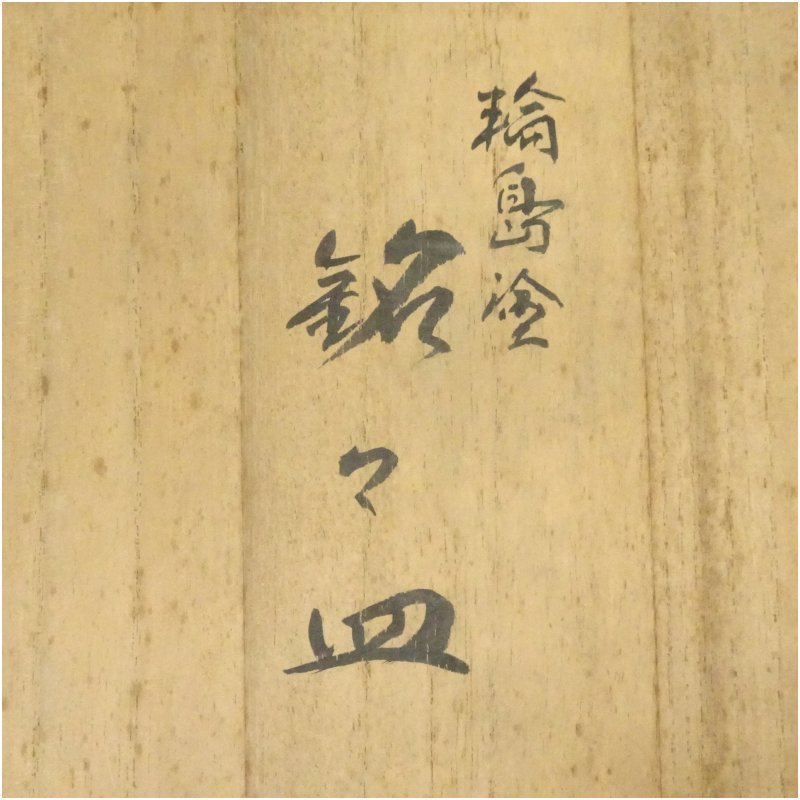 輪島塗
銘々皿